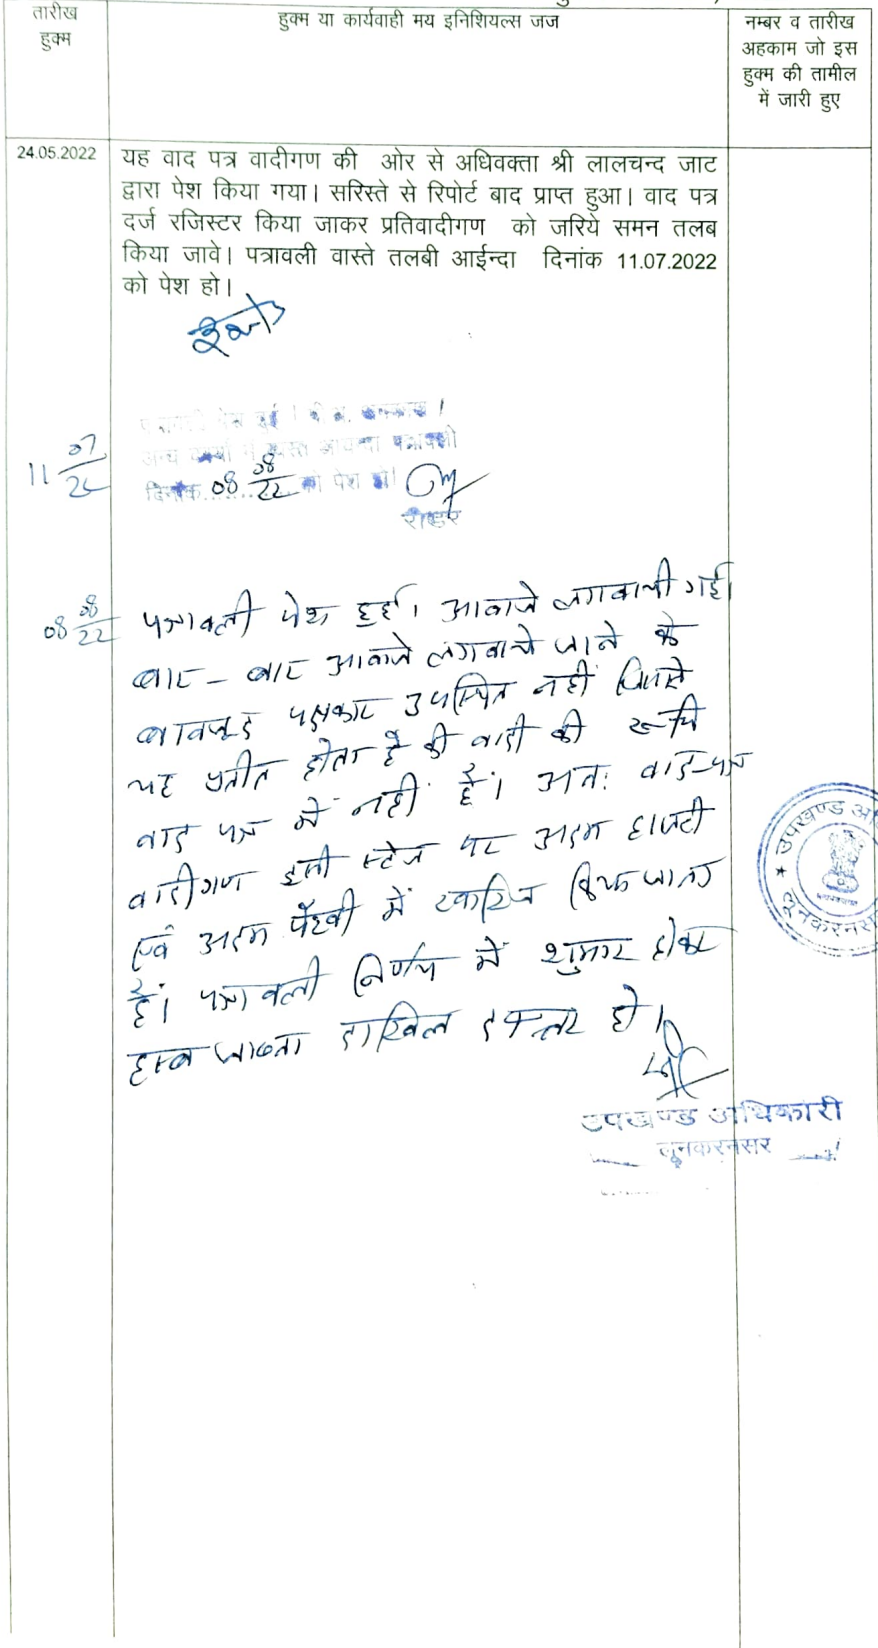 तारीख
हुक्म
हुक्म या कार्यवाही मय इनिशियल्स जज
नम्बर व तारीख
अहकाम जो इस
हुक्म की तामील
में जारी हुए
24.05.2022
यह वाद पत्र वादीगण की ओर से अधिवक्ता श्री लालचन्द जाट
द्वारा पेश किया गया। सरिस्ते से रिपोर्ट बाद प्राप्त हुआ। वाद पत्र
दर्ज रजिस्टर किया जाकर प्रतिवादीगण को जरिये समन तलब
किया जावे। पत्रावली वास्ते तलबी आईन्दा दिनांक 11.07.2022
को पेश हो।
11 07/22
पेश हुई।
अन्य कार्यों में व्यस्त आयन्दा पत्रावली
दिनांक 08 08/22 को पेश हो।
रीडर
08 08/22
पत्रावली पेश हुई। आवाजे लगवायी गई।
बार - बार आवाजे लगवाये जाने के
बावजूद पक्षकार उपस्थित नहीं जिससे
यह प्रतीत होता है की वादी की रूचि
वाद पत्र में नहीं है। अतः वाद-पत्र
वादीगण इसी स्टेज पर अदम हाजरी
एवं अदम पैरवी में खारिज किया जाता
है। पत्रावली निर्णय में शुमार होकर
हस्ब जाब्ता दाखिल दफ्तर हो।
उपखण्ड अधिकारी
लूनकरनसर
★ उपखण्ड अ
लूनकरनस